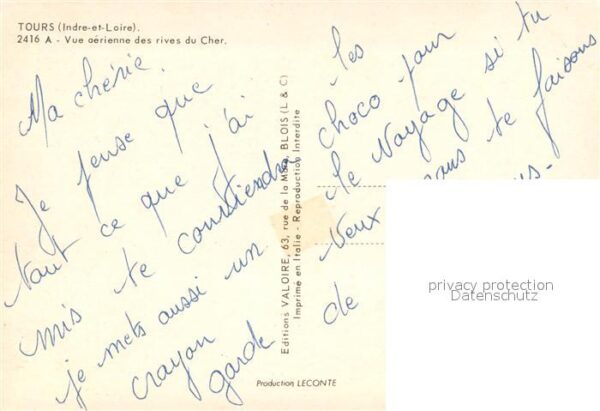 TOURS (Indre-et-Loire).
2416 A - Vue aérienne des rives du Cher.
Ma chérie.
Je pense que
tout ce que j'ai
mis te conviendra
je mets aussi un
crayon
garde
les
choco pour
le voyage si tu
veux nous te faisons
de
Editions VALOIRE, 63, rue de la Mare, BLOIS (L & C)
Imprimé en Italie - Reproduction Interdite
Production LECONTE
privacy protection
Datenschutz